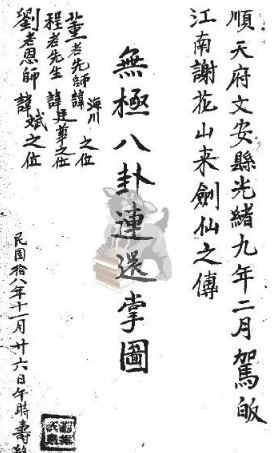 順天府文安縣光緒九年二月駕皈
江南謝花山来劍仙之傳
無極八卦連還掌圖
董老先師諱海川之位
程老先生諱廷華之位
劉老恩師諱斌之位
民国拾八年十二月廿六日午時壽